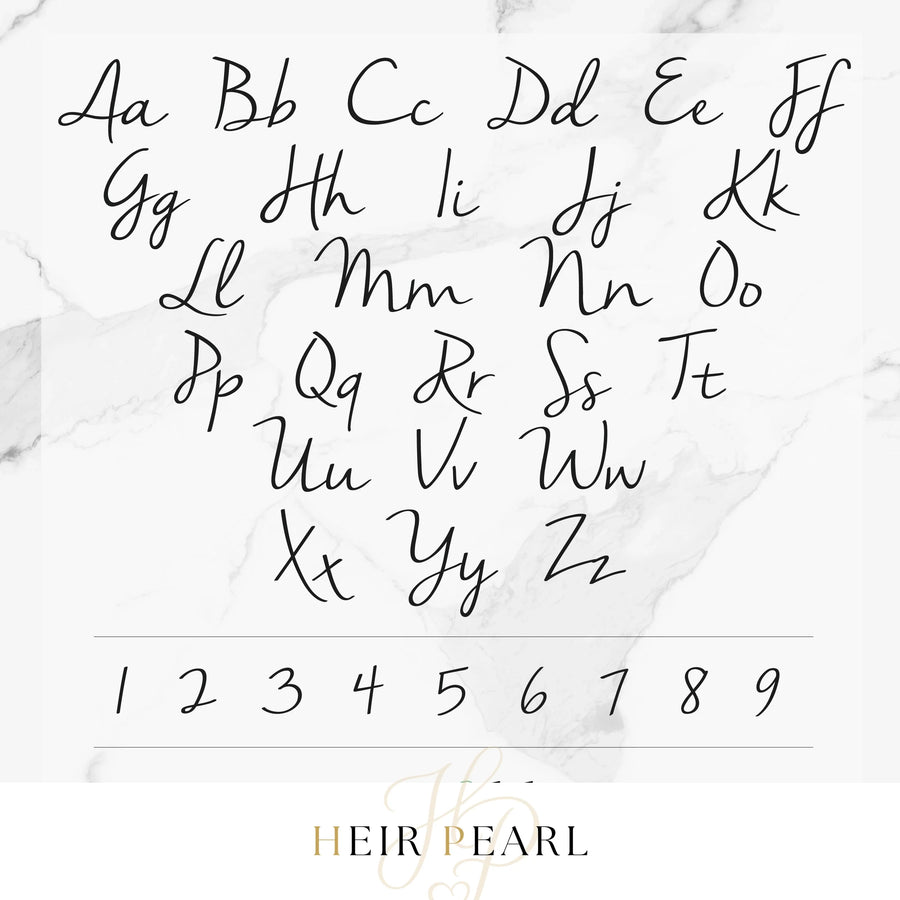 Aa Bb Cc Dd Ee Ff
Gg Hh Ii Jj Kk
Ll Mm Nn Oo
Pp Qq Rr Ss Tt
Uu Vv Ww
Xx Yy Zz
1 2 3 4 5 6 7 8 9
HP
HEIR PEARL